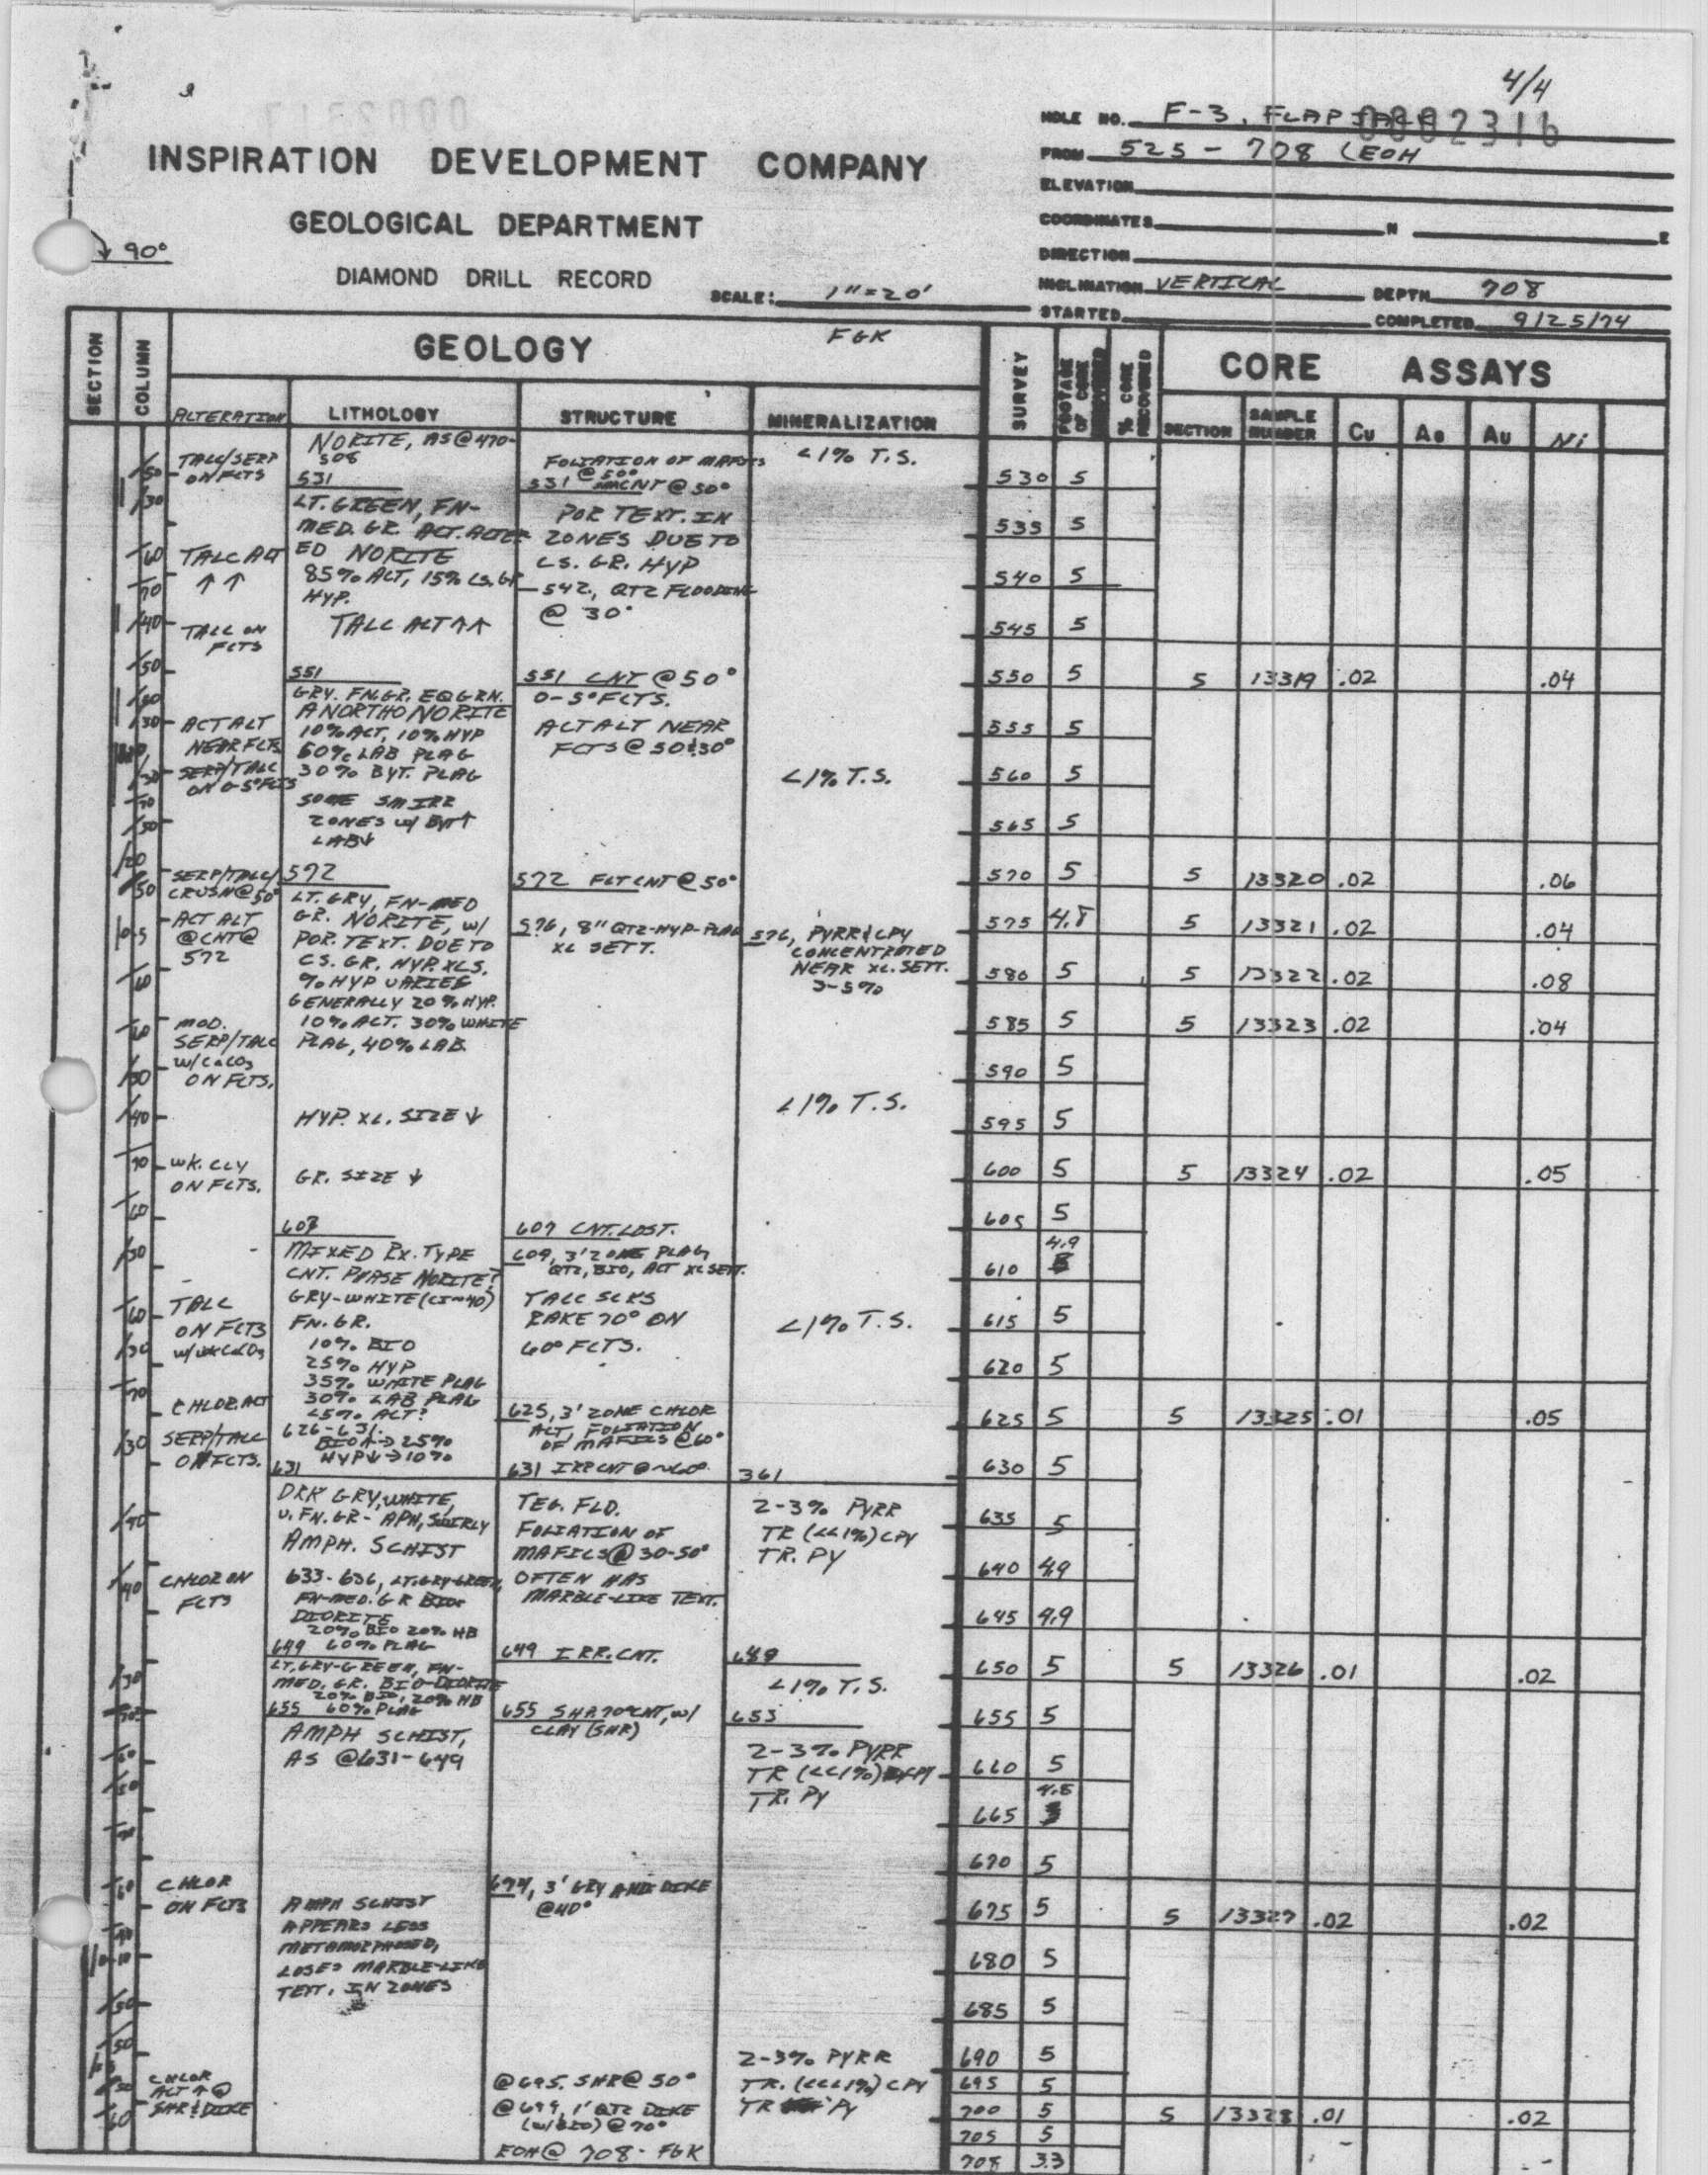 4/4
HOLE NO. F-3, FLAPJACK
0002316
FROM 525 - 708 (EOH
ELEVATION
COORDINATES N E
DIRECTION
INCLINATION VERTICAL DEPTH 708
STARTED COMPLETED 9/25/74
INSPIRATION DEVELOPMENT COMPANY
GEOLOGICAL DEPARTMENT
90°
DIAMOND DRILL RECORD
SCALE: 1"=20'
SECTION
COLUMN
GEOLOGY FGK
SURVEY
FOOTAGE OF CORE
% CORE RECOVERED
CORE ASSAYS
ALTERATION LITHOLOGY STRUCTURE MINERALIZATION
SECTION SAMPLE NUMBER Cu Ag Au Ni
TALC/SERP
ON FCTS
TALC ALT
↑ ↑
TALC ON
FCTS
ACT ALT
NEAR FCTS
SERP/TALC
ON 0-5° FCTS
SERP/TALC/
CRUSH@50°
ACT ALT
@CNT@
572
MOD.
SERP/TALC
W/CaCO3
ON FCTS.
WK. CLY
ON FCTS.
TALC
ON FCTS
W/WK CaCO3
CHLOR ALT
SERP/TALC
ON FCTS.
CHLOR ON
FCTS
CHLOR
ON FCTS
CHLOR
ALT ↑ @
SHR & DIKE
NORITE, AS @ 470-
508
531
LT. GREEN, FN-
MED. GR. ACT. ALTER
ED NORITE
85% ALT, 15% CS. GR
HYP.
TALC ALT ↑↑
551
GRY. FN. GR. EQ GRN.
ANORTHO NORITE
10% ACT, 10% HYP
60% LAB PLAG
30% BYT. PLAG
SOME SM IRR
ZONES W/ BYT↑
LAB↓
572
LT. GRY, FN-MED
GR. NORITE, W/
POR. TEXT. DUE TO
CS. GR. HYP. XLS.
% HYP VARIES
GENERALLY 20% HYP.
10% ACT. 30% WHITE
PLAG, 40% LAB.
HYP. XL. SIZE ↓
GR. SIZE ↓
607
MIXED RX. TYPE
CNT. PHASE NORITE?
GRY-WHITE (CI~40)
FN. GR.
10% BIO
25% HYP
35% WHITE PLAG
30% LAB PLAG
<5% ACT?
626-631.
BIO↑→25%
HYP↓→10%
631
DRK GRY, WHITE,
V. FN. GR - APH, SWIRLY
AMPH. SCHIST
633-636, LT. GRY-GREEN,
FN-MED. GR BIO-
DIORITE
20% BIO 20% HB
60% PLAG
649
LT. GRY-GREEN, FN-
MED. GR. BIO-DIORITE
20% BIO, 20% HB
60% PLAG
655
AMPH SCHIST,
AS @631-649
AMPH SCHIST
APPEARS LESS
METAMORPHOSED,
LOSES MARBLE-LIKE
TEXT. IN ZONES
FOLIATION OF MAFICS
@ 50°
531 CNT @ 50°
POR TEXT. IN
ZONES DUE TO
CS. GR. HYP
542, QTZ FLOODING
@ 30°
551 CNT @ 50°
0-5° FCTS.
ACT ALT NEAR
FCTS @ 50&30°
572 FLT CNT @ 50°
576, 8" QTZ-HYP-PLAG
XL SETT.
607 CNT. LOST.
609, 3' ZONE PLAG
QTZ, BIO, ACT XL SETT.
TALC SCKS
RAKE 70° ON
60° FCTS.
625, 3' ZONE CHLOR
ALT, FOLIATION
OF MAFICS @60°
631 IRR CNT @ ~60°
TEG. FLD.
FOLIATION OF
MAFICS @ 30-50°
OFTEN HAS
MARBLE-LIKE TEXT.
649 IRR. CNT.
655 SHR 70° CNT, W/
CLAY (SHR)
674, 3' GRY AND DIKE
@40°
@695. SHR @ 50°
@699, 1' QTZ DIKE
(W/BIO) @ 70°
EOH @ 708 - FGK
<1% T.S.
<1% T.S.
576, PYRR & CPY
CONCENTRATED
NEAR XL. SETT.
3-5%
<1% T.S.
<1% T.S.
361
2-3% PYRR
TR (<<1%) CPY
TR. PY
649
<1% T.S.
655
2-3% PYRR
TR (<<1%) CPY
TR. PY
2-3% PYRR
TR. (<<<1%) CPY
TR PY
530 5
535 5
540 5
545 5
550 5 5 13319 .02 .04
555 5
560 5
565 5
570 5 5 13320 .02 .06
575 4.8 5 13321 .02 .04
580 5 5 13322 .02 .08
585 5 5 13323 .02 .04
590 5
595 5
600 5 5 13324 .02 .05
605 5
610 4.9
615 5
620 5
625 5 5 13325 .01 .05
630 5
635 5
640 4.9
645 4.9
650 5 5 13326 .01 .02
655 5
660 5
665 4.8
670 5
675 5 5 13327 .02 .02
680 5
685 5
690 5
695 5
700 5 5 13328 .01 .02
705 5
708 3.3